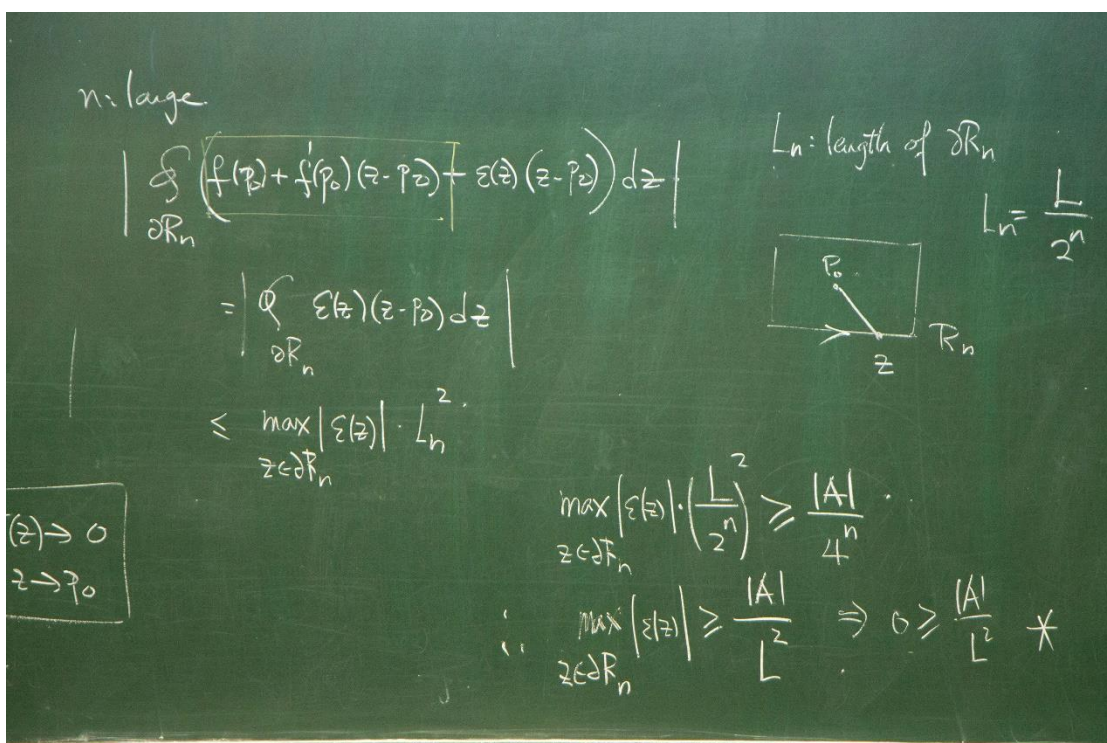 n: large
| ∮_{∂R_n} (f(p_0) + f'(p_0)(z-p_0) + ε(z)(z-p_0)) dz |
= | ∮_{∂R_n} ε(z)(z-p_0) dz |
≤ max_{z∈∂R_n} |ε(z)| · L_n^2
(z) → 0
z → p_0
L_n: length of ∂R_n
L_n = L / 2^n
P_0
z
R_n
max_{z∈∂R_n} |ε(z)| · (L / 2^n)^2 ≥ |A| / 4^n
∴ max_{z∈∂R_n} |ε(z)| ≥ |A| / L^2 ⇒ 0 ≥ |A| / L^2 ※